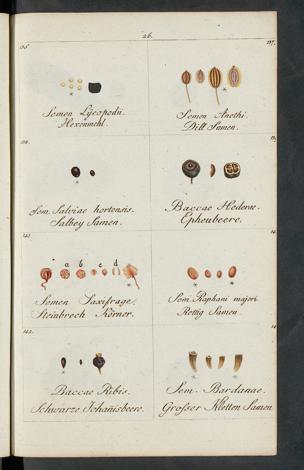 26.
Semen Lycopodii.
Hexenmehl.
Semen Anethi.
Dill Samen.
Sem. Salviae hortensis.
Salbey Samen.
Baccae Hederae.
Epheubeere.
a b c d
Semen Saxifragæ.
Steinbrech Körner.
Sem. Raphani majori
Rettig Samen.
142.
Baccae Ribis.
Schwarze Johañisbeere.
Sem. Bardanae.
Großer Kletten Samen